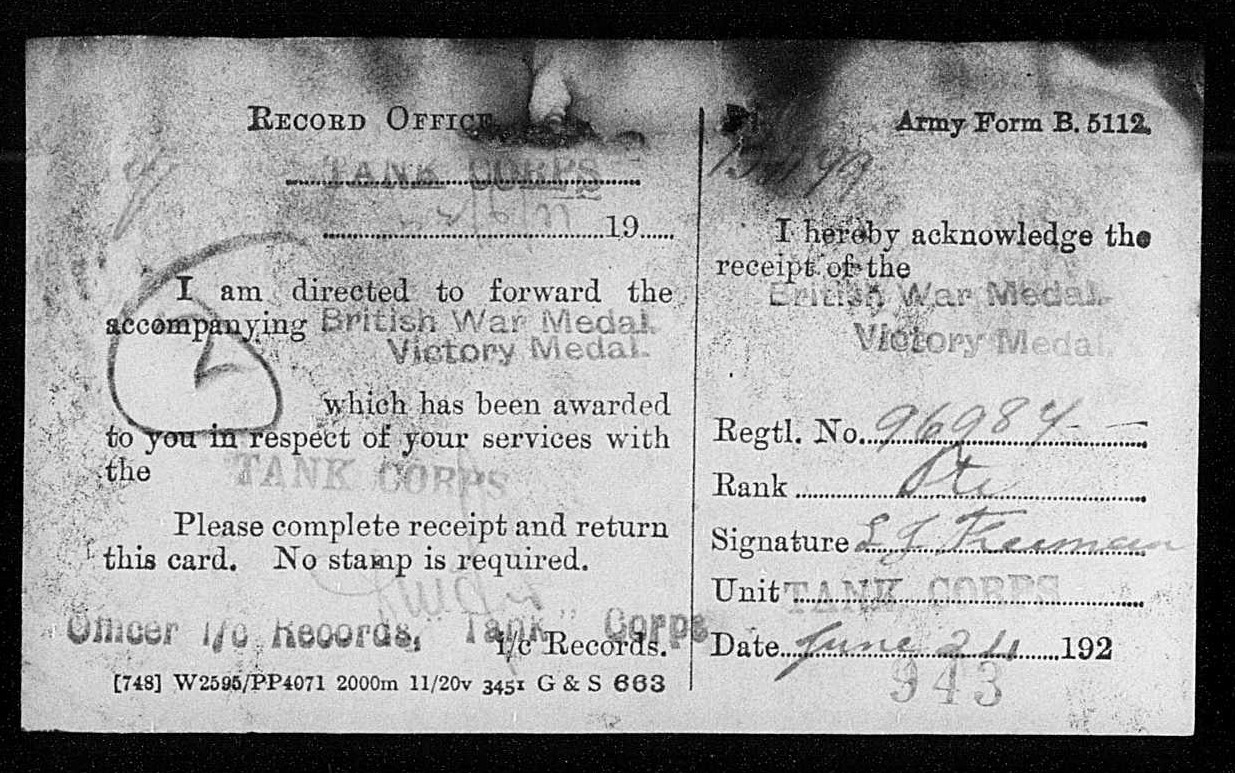 RECORD OFFICE
TANK CORPS
19
I am directed to forward the
accompanying British War Medal.
Victory Medal.
2
which has been awarded
to you in respect of your services with
the
TANK CORPS
Please complete receipt and return
this card. No stamp is required.
Officer i/c Records, "Tank" Corps
i/c Records.
[748] W2595/PP4071 2000m 11/20v 3451 G & S 663
Army Form B. 5112.
I hereby acknowledge the
receipt of the
British War Medal.
Victory Medal.
Regtl. No. 96984
Rank Pte
Signature L J
Unit TANK CORPS
Date June 24 192
943